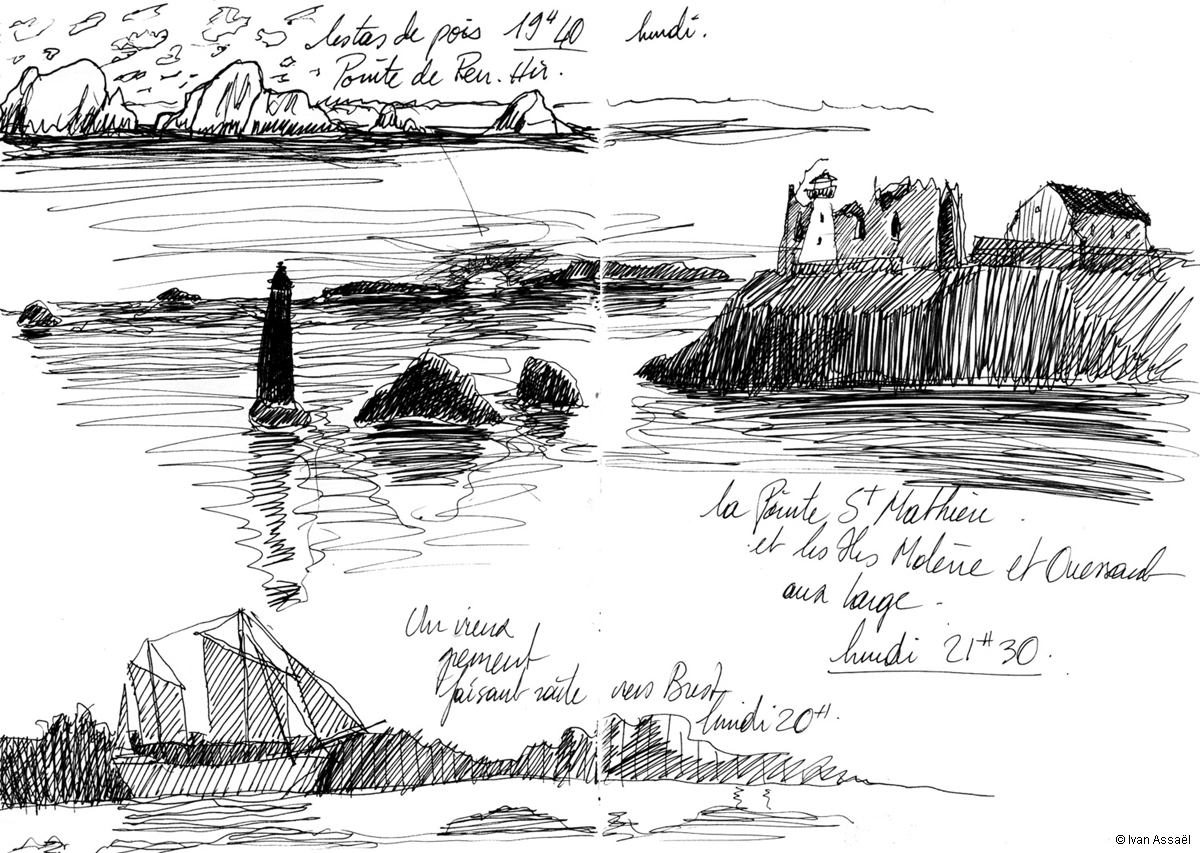 les tas de pois 19H40 lundi.
Pointe de Pen-Hir.
la Pointe St Mathieu.
et les Iles Molène et Ouessant
aux large.
lundi 21H30.
Un vieux
gréement
faisant route vers Brest
lundi 20H.
© Ivan Assaël